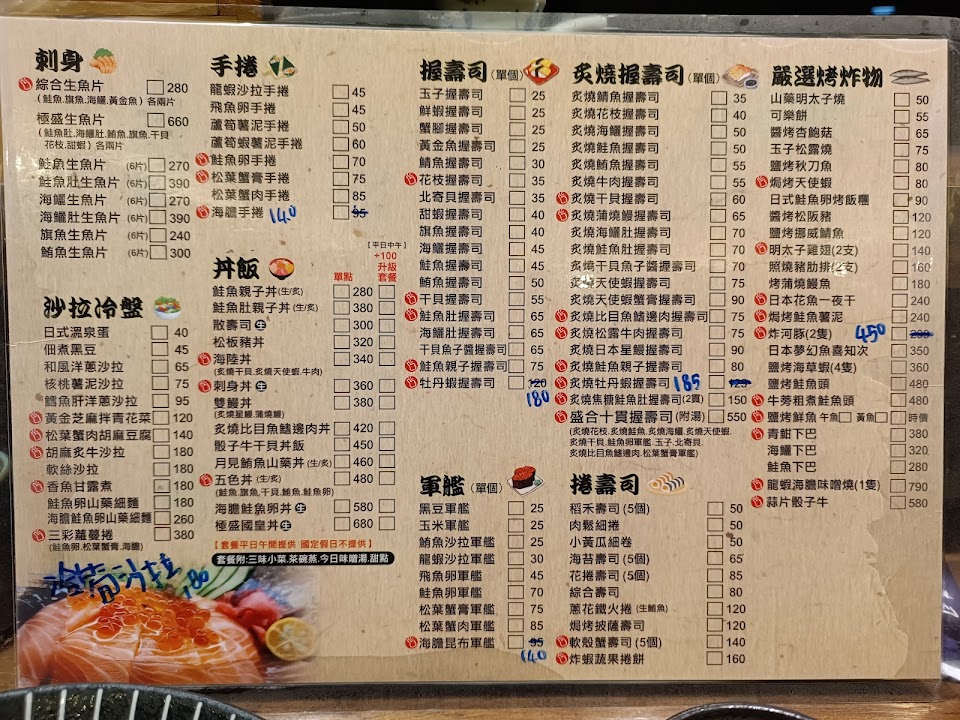 刺身
綜合生魚片 280
(鮭魚.旗魚.海鱺.黃金魚) 各兩片
極盛生魚片 660
(鮭魚肚.海鱺肚.鮪魚.旗魚.干貝
花枝.甜蝦) 各兩片
鮭魚生魚片 (6片) 270
鮭魚肚生魚片 (6片) 390
海鱺生魚片 (6片) 270
海鱺肚生魚片 (6片) 390
旗魚生魚片 (6片) 240
鮪魚生魚片 (6片) 300
沙拉冷盤
日式溫泉蛋 40
佃煮黑豆 45
和風洋蔥沙拉 65
核桃薯泥沙拉 75
鱈魚肝洋蔥沙拉 95
黃金芝麻拌青花菜 120
松葉蟹肉胡麻豆腐 140
胡麻炙牛沙拉 180
軟絲沙拉 180
香魚甘露煮 180
鮭魚卵山藥細麵 180
海膽鮭魚卵山藥細麵 260
三彩蘿蔓捲 380
(鮭魚卵.松葉蟹膏.海膽)
沙拉 180
手捲
龍蝦沙拉手捲 45
飛魚卵手捲 45
蘆筍薯泥手捲 50
蘆筍蝦薯泥手捲 60
鮭魚卵手捲 70
松葉蟹膏手捲 75
松葉蟹肉手捲 85
海膽手捲 140 95
丼飯
單點
【平日中午】
+100
升級
套餐
鮭魚親子丼(生/炙) 280
鮭魚肚親子丼(生/炙) 380
散壽司 生 300
松板豬丼 320
海陸丼 340
(炙燒干貝.炙燒天使蝦.牛肉)
刺身丼 生 360
雙鰻丼 380
(炙燒星鰻.蒲燒鰻)
炙燒比目魚鰭邊肉丼 420
骰子牛干貝丼飯 450
月見鮪魚山藥丼(生/炙) 460
五色丼(生/炙) 480
(鮭魚.旗魚.干貝.鮪魚.鮭魚卵)
海膽鮭魚卵丼 生 580
極盛國皇丼 生 680
【套餐平日午間提供 國定假日不提供】
套餐附:三味小菜.茶碗蒸.今日味噌湯.甜點
握壽司(單個)
玉子握壽司 25
鮮蝦握壽司 25
蟹腳握壽司 25
黃金魚握壽司 25
鯖魚握壽司 30
花枝握壽司 35
北寄貝握壽司 35
甜蝦握壽司 40
旗魚握壽司 40
海鱺握壽司 45
鮭魚握壽司 45
鮪魚握壽司 50
干貝握壽司 55
鮭魚肚握壽司 65
海鱺肚握壽司 65
干貝魚子醬握壽司 65
鮭魚親子握壽司 75
牡丹蝦握壽司 120
180
軍艦(單個)
黑豆軍艦 25
玉米軍艦 25
鮪魚沙拉軍艦 25
龍蝦沙拉軍艦 30
飛魚卵軍艦 45
鮭魚卵軍艦 70
松葉蟹膏軍艦 75
松葉蟹肉軍艦 85
海膽昆布軍艦 95
140
炙燒握壽司(單個)
炙燒鯖魚握壽司 35
炙燒花枝握壽司 40
炙燒海鱺握壽司 50
炙燒鮭魚握壽司 50
炙燒鮪魚握壽司 55
炙燒牛肉握壽司 55
炙燒干貝握壽司 60
炙燒蒲燒鰻握壽司 65
炙燒海鱺肚握壽司 70
炙燒鮭魚肚握壽司 70
炙燒干貝魚子醬握壽司 70
炙燒天使蝦握壽司 75
炙燒天使蝦蟹膏握壽司 90
炙燒比目魚鰭邊肉握壽司 75
炙燒松露牛肉握壽司 75
炙燒日本星鰻握壽司 90
炙燒鮭魚親子握壽司 80
炙燒牡丹蝦握壽司 185 125
炙燒焦糖鮭魚肚握壽司(2貫) 150
盛合十貫握壽司(附湯) 550
(炙燒花枝.炙燒鮭魚.炙燒海鱺.炙燒天使蝦.
炙燒干貝.鮭魚卵軍艦.玉子.北寄貝.
炙燒比目魚鰭邊肉.松葉蟹膏軍艦)
捲壽司
稻禾壽司(5個) 50
肉鬆細捲 50
小黃瓜細卷 50
海苔壽司(5個) 65
花捲壽司(5個) 85
綜合壽司 70
蔥花鐵火捲(生鮪魚) 120
焗烤披薩壽司 120
軟殼蟹壽司(5個) 140
炸蝦蔬果捲餅 160
嚴選烤炸物
山藥明太子燒 50
可樂餅 55
醬烤杏鮑菇 65
玉子松露燒 75
鹽烤秋刀魚 80
焗烤天使蝦 80
日式鮭魚卵烤飯糰 90
醬烤松阪豬 120
鹽烤挪威鯖魚 120
明太子雞翅(2支) 140
照燒豬肋排(2支) 160
烤蒲燒鰻魚 180
日本花魚一夜干 240
焗烤鮭魚薯泥 240
炸河豚(2隻) 450
日本夢幻魚喜知次 350
鹽烤海草蝦(4隻) 360
鹽烤鮭魚頭 480
牛蒡粗煮鮭魚頭 480
鹽烤鮮魚 午魚 黃魚 時價
青魽下巴 380
海鱺下巴 320
鮭魚下巴 280
龍蝦海膽味噌燒(1隻) 790
蒜片骰子牛 580